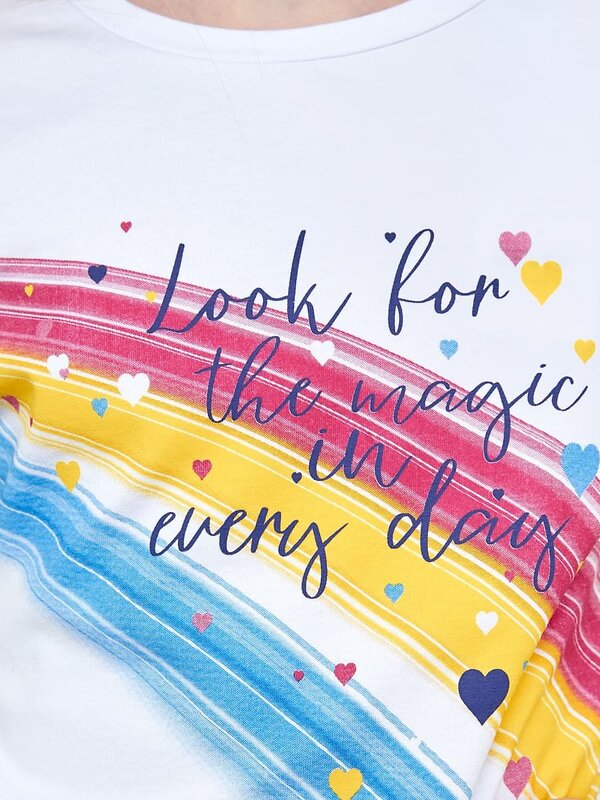 Look for
the magic
in
every day